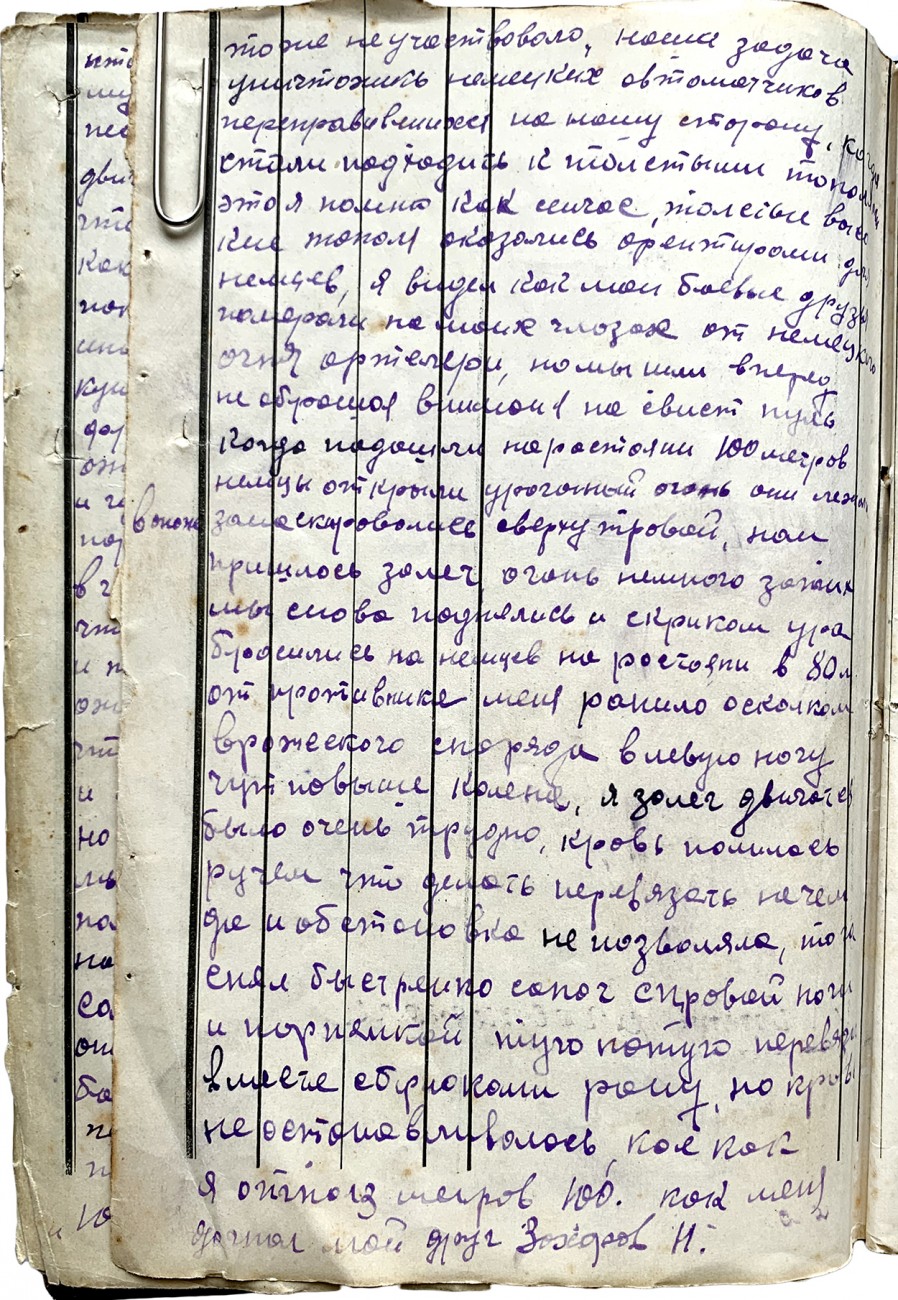 тоже неучаствовало, наша задача
уничтожить немецких автоматчиков
переправившихся на нашу сторону, когда
стали подходить к толстыми тополями
это я помню как сичас, толстые высо
кие тополя оказались орентирами для
немцев, я видел как мои боевые друзья
помирали на моих глазах от немецкого
огня артелери, номы шли вперед
не обращая внимания на свист пуль
Когда подошли нарастояни 100 метров
немцы открыли ураганный огонь они лежали
в окопе замаскировались сверху травой, нам
пришлось залеч, огонь немного затих
мы снова поднялись и скриком ура
бросились на немцев на растояни в 80 м
от противника меня ранило осколком
вражеского снаряда в левую ногу
чуть повыше колена, я залег двигатся
было очень трудно, кровь полилась
ручем что делать перевязать нечем
да и обстановка не позволяла, тогда
снял быстренко сапог справой ноги
и портянкой туго натуго перевязал
вместе сбрюками рану, но кровь
неостанавливалось, кое как
я отполз метров 100. как меня
догнал мой друг Захаров Н.